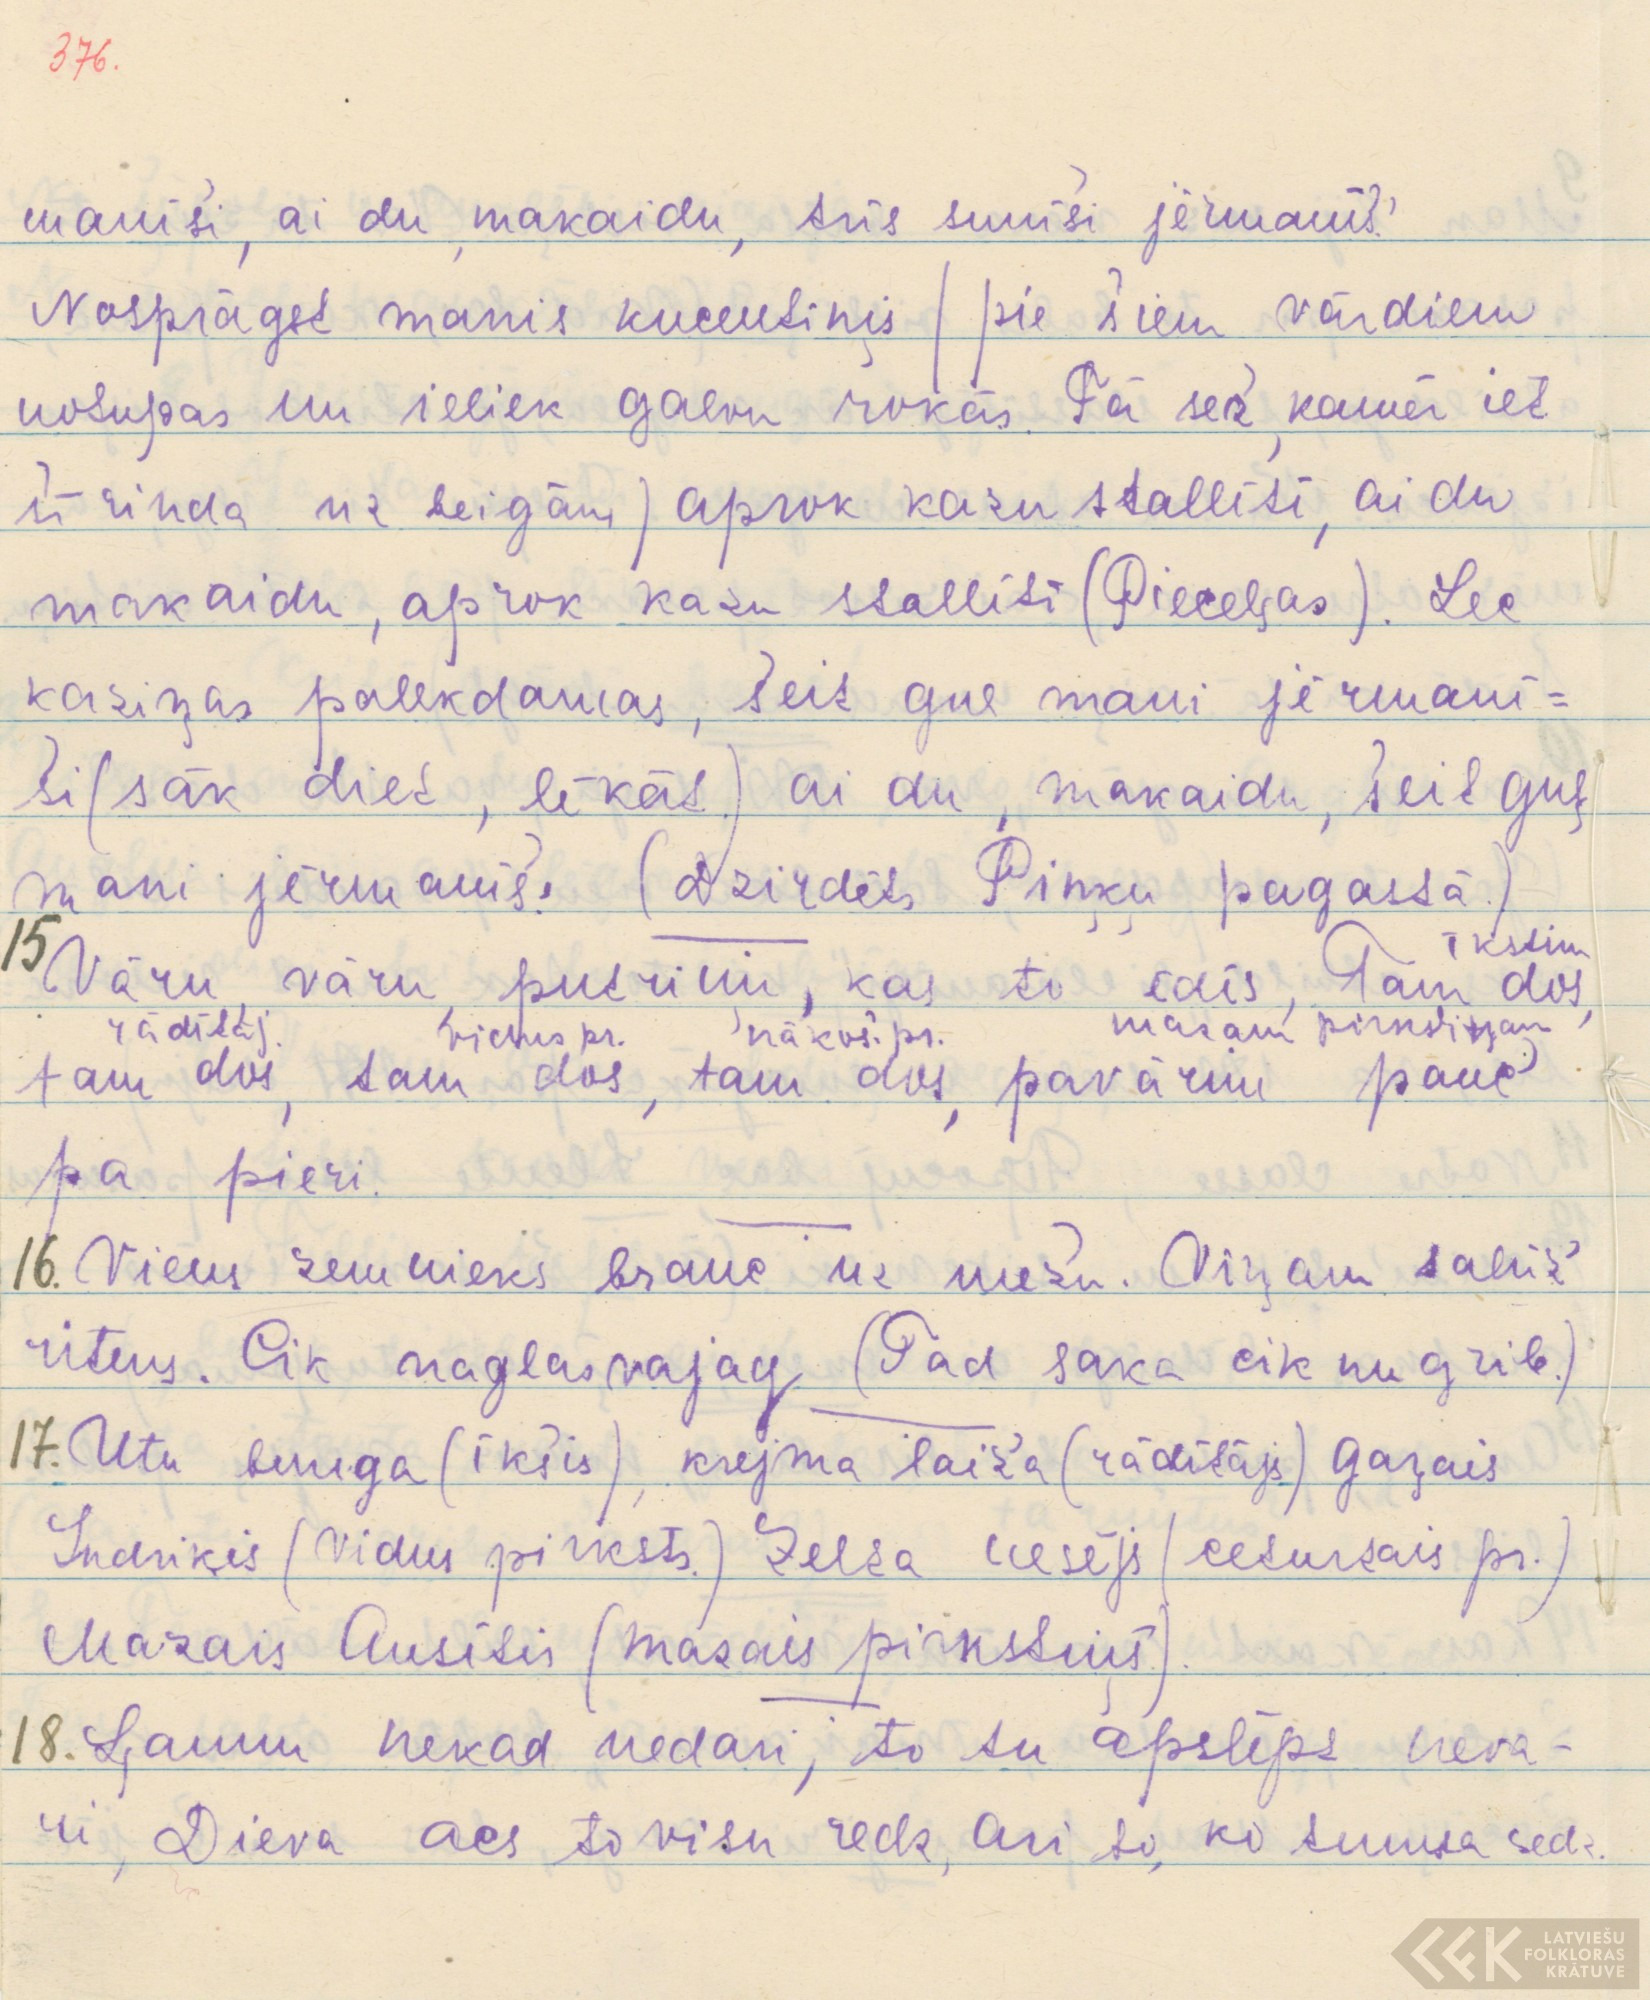 376.
maniši, ai du, makaidu, trīs sunīši jērmanīš!
Nosprāgst manis kucentiņis (pie šiem vārdiem
notupas un ieliek galvu rokās. Tā sēž, kamēr iet
šī rinda uz beigām) aprok kazu stallītī, ai du
makaidu, aprok kazu stallītī (Pieceļas). Lec
kaziņas palekdamas, šeit guļ mani jērmanī=
ši (sāk diet, lēkāt.) ai du, makaidu, šeit guļ
mani jērmanīš! (dzirdēts Piņķu pagastā.)
15 Vāru, vāru putriņu, kas to ēdīs, Tam dos,
īkstim
rādītāj. vidus pr. nākoš. pr. mazam pirkstiņam
tam dos, tam dos, tam dos, pavārnīc pauc
pa pieri.
16. Viens zemnieks brauc uz mežu. Viņam salūž
ritens. Cik naglas vajag (Tad saka cik nu grib.)
17. Utu bunga (īkšis), krejma laiža (rādītājs) Gaŗais
Indriķis (Vidus pirksts.) Zelta nesējs (ceturtais pr.)
Mazais Ansītis (mazais pirkstiņš).
18. Ļaunu nekad nedari, to tu apslēpt neva-
ri, Dieva acs to visu redz, Ari to, ko tumsa sedz.
LATVIEŠU
FOLKLORAS
KRĀTUVE